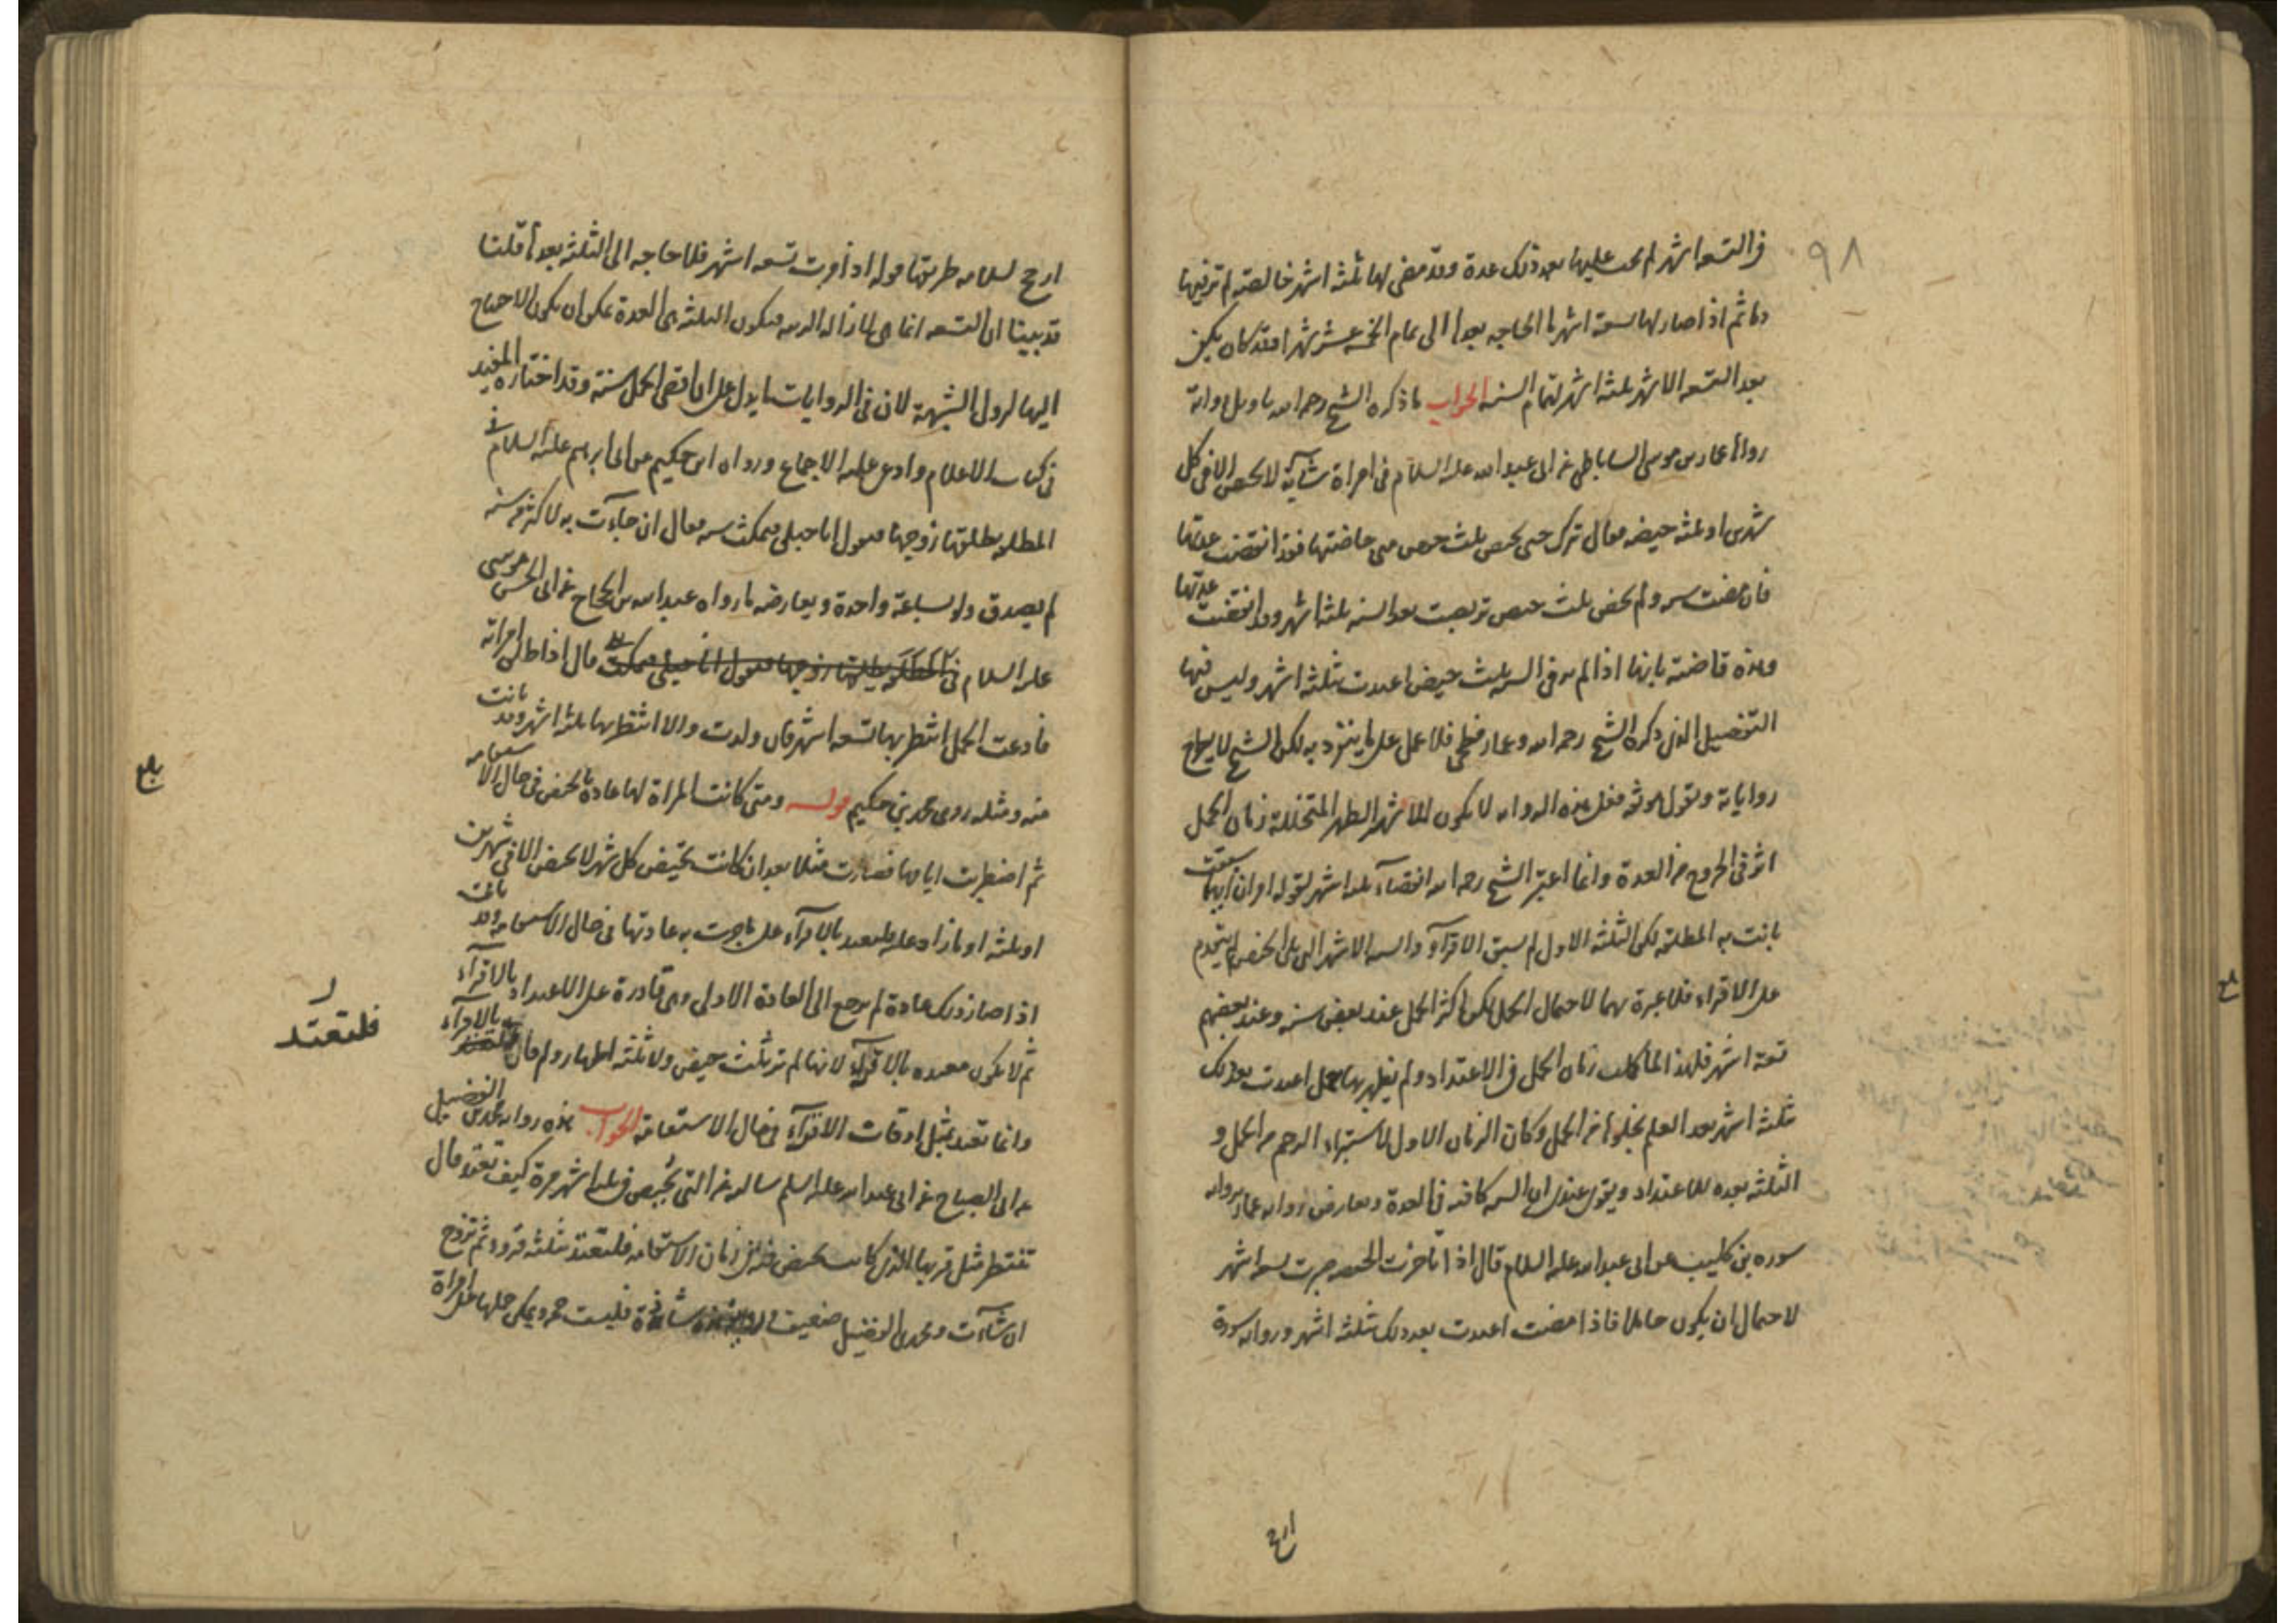 ٩٨
في التسعة اشهر لم يجب عليها بعد ذلك عدة وقد مضى لها ثلثة اشهر خالصة لم تر فيها
دما ثم اذا صار لها تسعة اشهر ما الحاجة بعدها الى تمام الخمسة عشر شهرا وقد كان يكفي
بعد التسعة الاشهر ثلثة اشهر لتمام السنة الجواب ما ذكره الشيخ رحمه الله تاويل رواية
رواها عمار بن موسى الساباطي عن ابي عبد الله عليه السلام في امراة شابة لا تحيض الا في كل
شهرين او ثلثة حيضة فقال تترك حتى تحيض ثلث حيض متى حاضتها فقد انقضت عدتها
فان مضت سنة ولم تحض ثلث حيض تربصت بعد السنة ثلثة اشهر وقد انقضت عدتها
وهذه قاضية بانها اذا لم تر في السنة ثلث حيض اعتدت بثلثة اشهر وليس فيها
التفصيل الذي ذكره الشيخ رحمه الله وعمار فطحي فلا عمل على ما ينفرد به لكن الشيخ لا يطرح
رواياته ويقول هو ثقة فعلى هذه الرواية لا يكون للاشهر الطهر المتخللة زمان الحمل
اثر في الخروج من العدة وانما اعتبر الشيخ رحمه الله انقضاء ثلثة اشهر لقوله امران ايهما سبقت
بانت به المطلقة لكن الثلثة الاول لم تسبق الاقرآء والستة الاشهر التي يليها الحيض لم يتقدم
على الاقراء فلا عبرة بهما لاحتمال الحمل لكن اكثر الحمل عند بعض سنة وعند بعضهم
تسعة اشهر فلهذا لما كملت زمان الحمل في الاعتداد ولم يظهر بها حمل اعتدت بعد ذلك
ثلثة اشهر بعد العلم بخلوها من الحمل وكان الزمان الاول لاستبراء الرحم من الحمل و
الثلثة بعده للاعتداد ويقوى عندي ان السنة كافية في العدة ويعارض رواية عمار برواية
سورة بن كليب عن ابي عبد الله عليه السلام قال اذا تاخرت الحيضة صبرت تسعة اشهر
لاحتمال ان يكون حاملا فاذا مضت اعتدت بعد ذلك بثلثة اشهر ورواية سورة
ارجح
ارجح لسلامة طريقها قوله اذا وفت تسعة اشهر فلا حاجة الى الثلثة بعدها قلنا
قد بينا ان التسعة انما هي لازالة الريبة فيكون الثلثة هي العدة يمكن ان يكون الاحتياج
اليها لزوال الشبهة لان في الروايات ما يدل على ان اقصى الحمل سنة وقد اختاره المفيد
في كتاب الاعلام وادعى عليه الاجماع ورواه ابن حكيم عن ابي ابرهيم عليه السلام في
المطلقة يطلقها زوجها فتقول انا حبلى فتمكث سنة فقال ان جاءت به لاكثر من سنة
لم يصدق ولو ساعة واحدة ويعارضه ما رواه عبد الله بن الحجاج عن ابي الحسن موسى
عليه السلام قال اذا طلق امراته
فادعت الحمل انتظر بها تسعة اشهر فان ولدت والا انتظر بها ثلثة اشهر وقد بانت
منه ومثله روى محمد بن حكيم قوله ومتى كانت المراة لها عادة بالحيض في حال الاستقامة
ثم اضطربت ايامها فصارت مثلا بعد ان كانت تحيض كل شهر لا تحيض الا في شهرين
او ثلثة او ما زاد عليه فلتعتد بالاقرآء على ما جرت به عادتها في حال الاستقامة وقد بانت
اذا صار ذلك عادة لم يرجع الى العادة الاولى وهي قادرة على الاعتداد بالاقرآء
ثم لا يكون معتدة بالاقرآء لانها لم تر ثلث حيض ولا ثلثة اطهار ولم قال بالاقرآء
وانما تعتد بمثل اوقات الاقرآء في حال الاستقامة الجواب هذه رواية محمد بن الفضيل
عن ابي الصباح عن ابي عبد الله عليه السلم سالته عن التي تحيض في ثلثة اشهر مرة كيف تعتد قال
تنتظر مثل قرءها الذي كانت تحيض فيه في زمان الاستقامة فلتعتد بثلثة قروء ثم تزوج
ان شاءت ومحمد بن الفضيل ضعيف شاذة فليست حجة ويمكن حملها على امراة
فلتعتد
بلغ